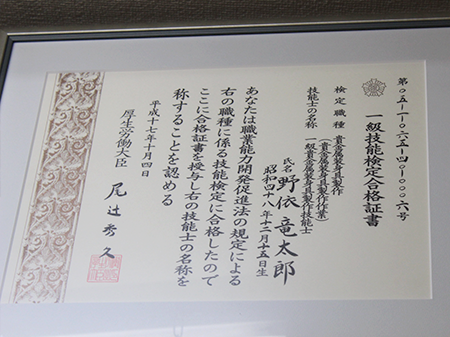 第０５－１－０６５－４０－０００６号
一級技能検定合格証書
検定職種 貴金属装身具製作
(貴金属装身具製作作業)
技能士の名称 一級貴金属装身具製作技能士
氏名 野依竜太郎
昭和四十八年十二月十五日生
あなたは職業能力開発促進法の規定による
右の職種に係る技能検定に合格したので
ここに合格証書を授与し右の技能士の名称を
称することを認める
平成十七年十月四日
厚生労働大臣 尾辻秀久